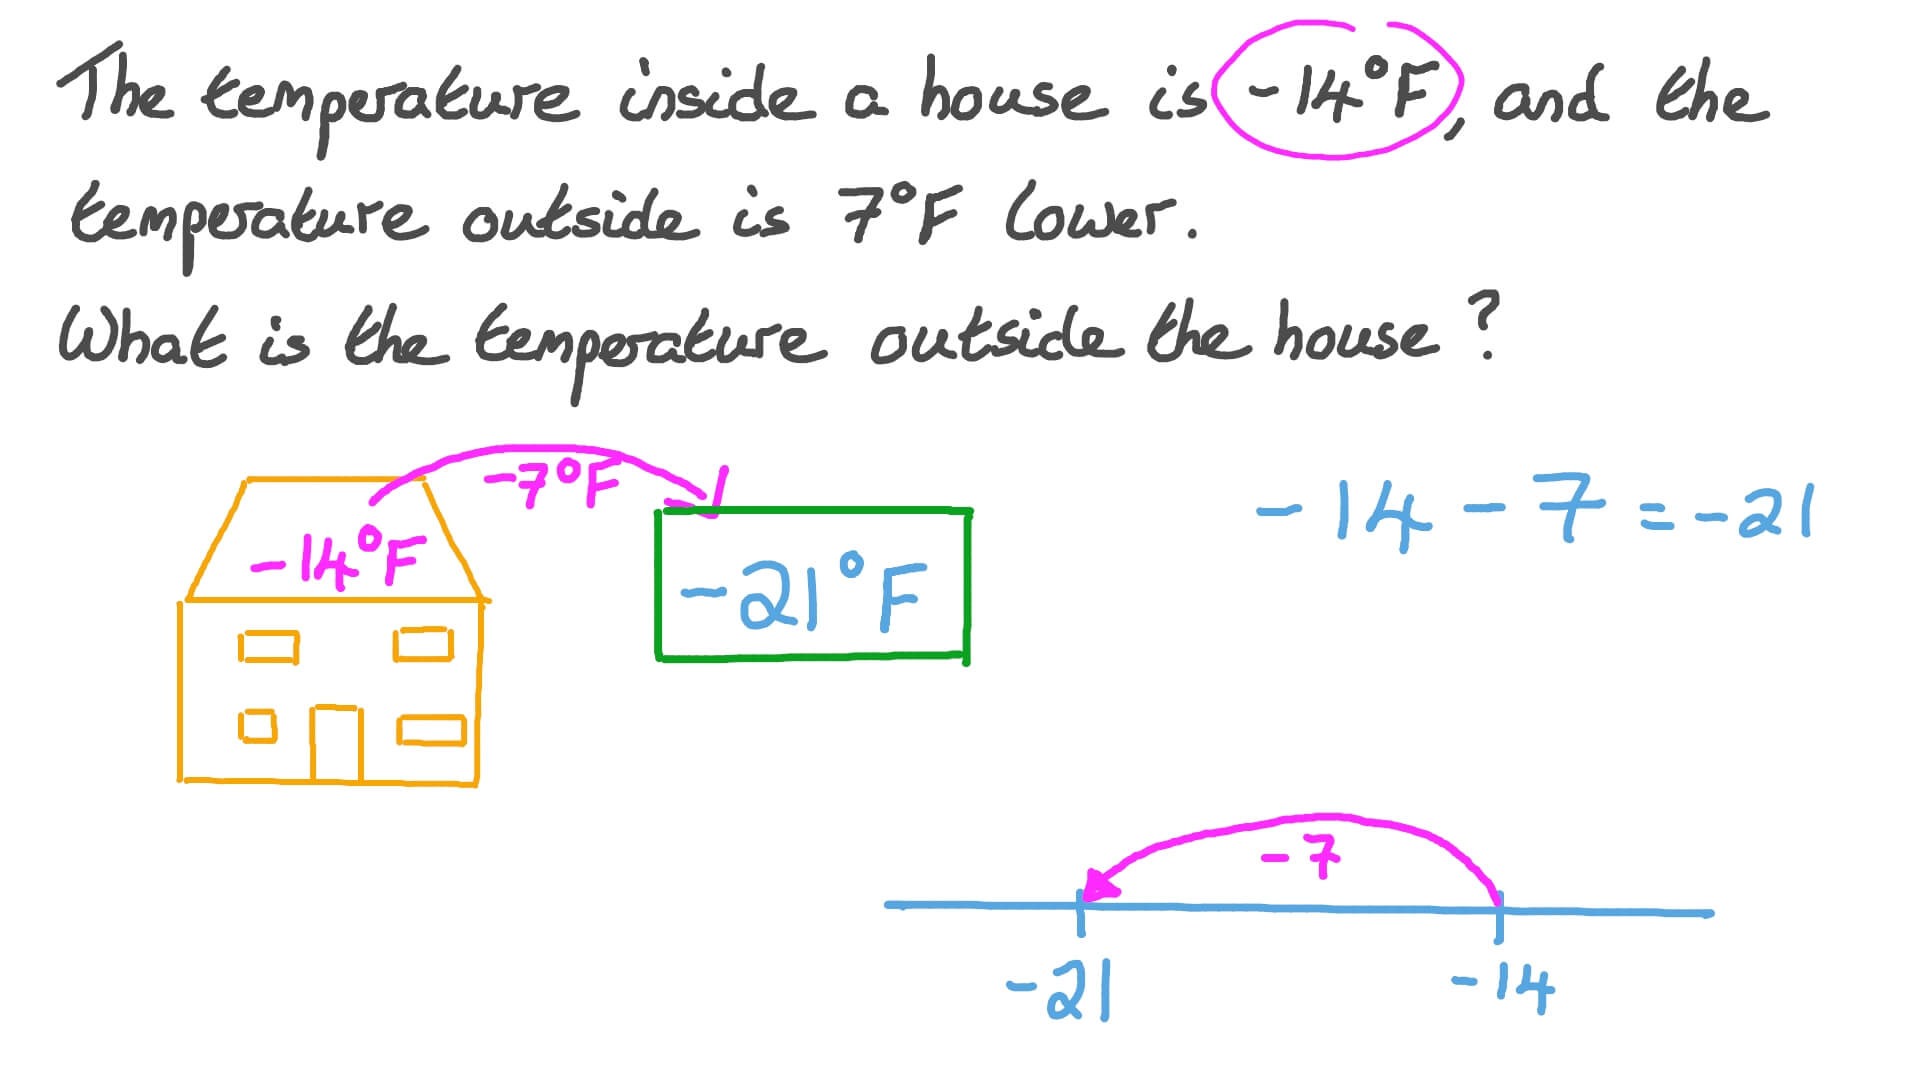 The temperature inside a house is -14°F, and the
temperature outside is 7°F lower.
What is the temperature outside the house?
-7°F
-14°F
-21°F
-14-7=-21
-7
-21
-14